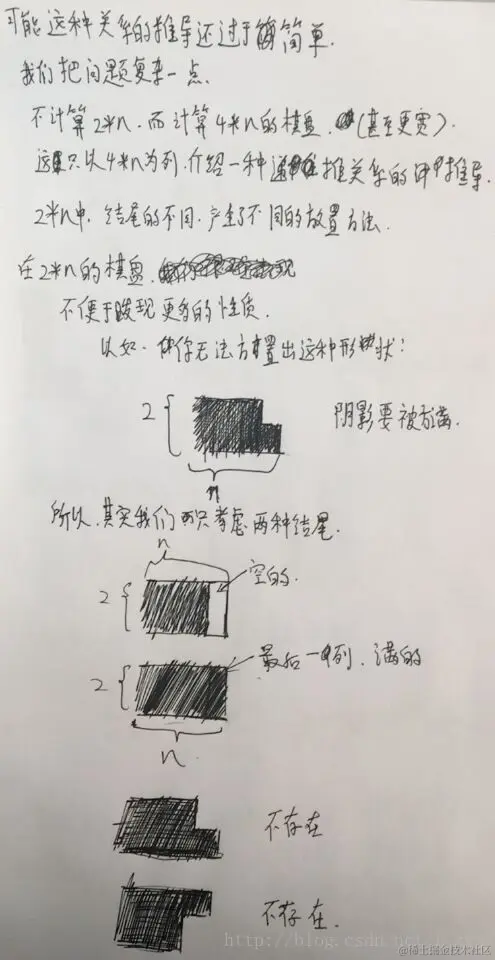 可能这种关系的推导还过于简单.
我们把问题复杂一点.
不计算2*n.而计算4*n的棋盘.(甚至更宽).
这只以4*n为列.介绍一种推关系的推导.
2*n中.结尾的不同.产生了不同的放置方法.
在2*n的棋盘.
不便于发现更多的性质.
比如.你无法放置出这种形状:
2
阴影要被放满.
n
所以.其实我们只考虑两种结尾.
n
空的.
2
最后一列.满的
2
n
不存在
不存在.
http://blog.csdn.net/
@稀土掘金技术社区